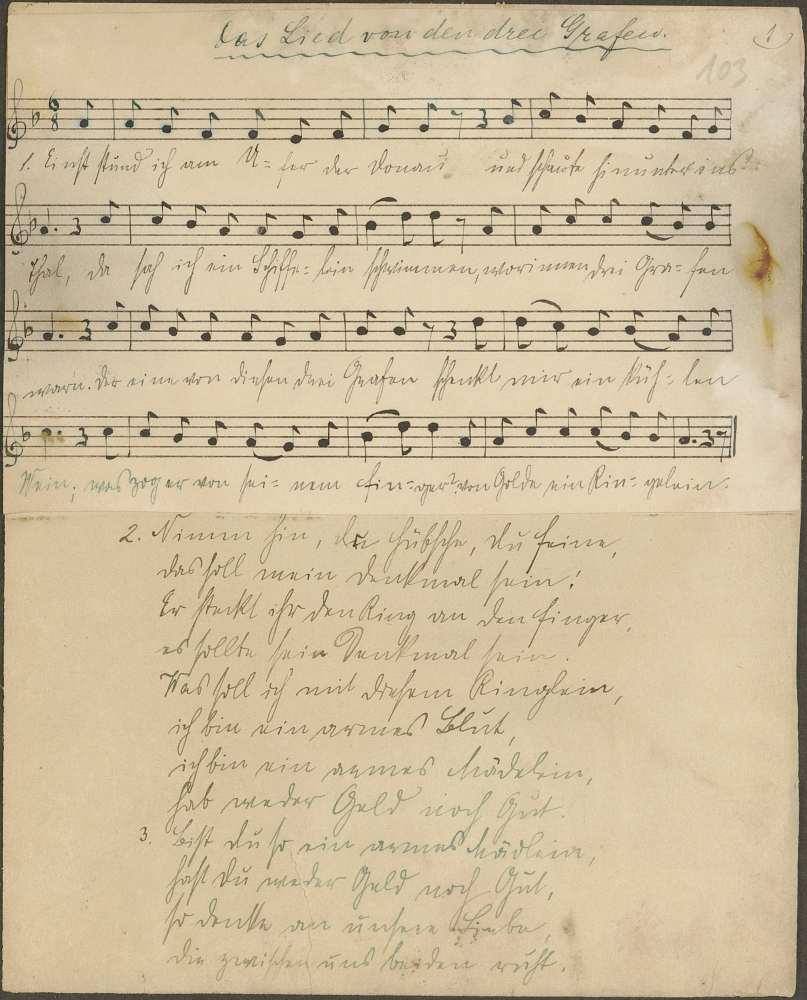 Das Lied von den drei Grafen.
1
103
1. Einst stund ich am U-fer der Donau und schaute hinunter ins
Thal, da sah ich ein Schiffe-lein schwimmen, worinnen drei Gra-fen
warn. Der eine von diesen drei Grafen schenkt mir ein küh-len
Wein; was zog er von sei-nem Fin-ger? von Golde ein Rin-gelein.
2. Nimm hin, du hübsche, du feine,
das soll mein Denkmal sein!
Er steckt ihr den Ring an den Finger,
es sollte sein Denkmal sein.
Was soll ich mit diesem Ringlein,
ich bin ein armes Blut,
ich bin ein armes Mädelein,
hab weder Geld noch Gut.
3. Bist du so ein armes Mädlein,
hast du weder Geld noch Gut,
so denke an unsere Liebe,
die zwischen uns beiden ruht.